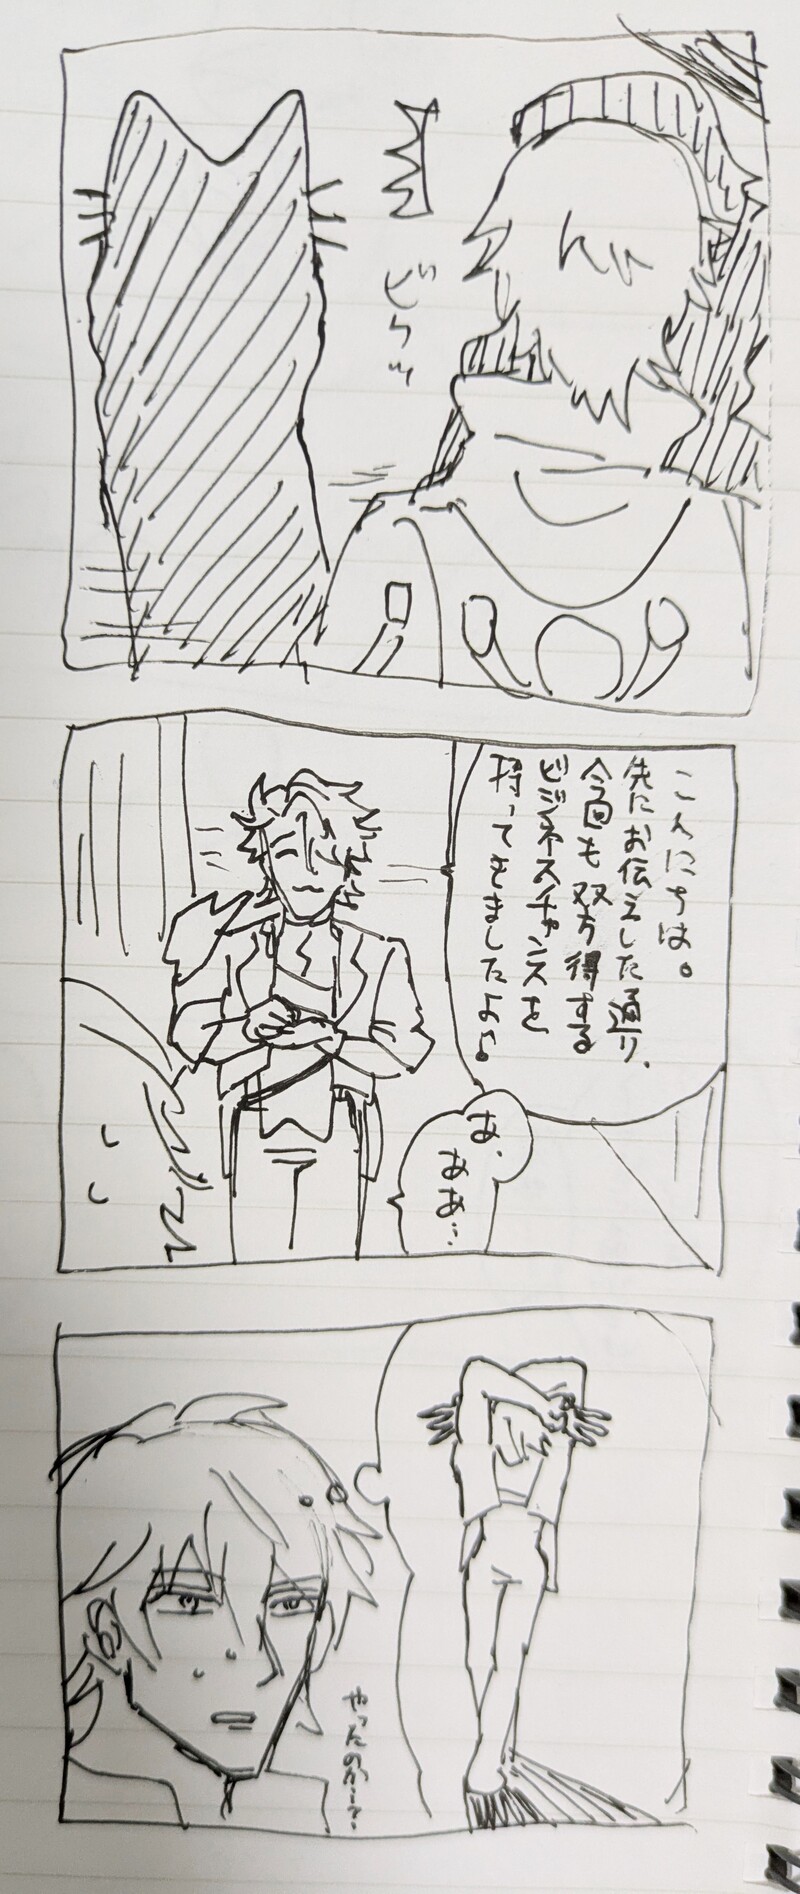 ビクッ
こんにちは。
先にお伝えした通り、
今回も双方得する
ビジネスチャンスを
持ってきましたよ。
あ、
ああ…
やったのか…?